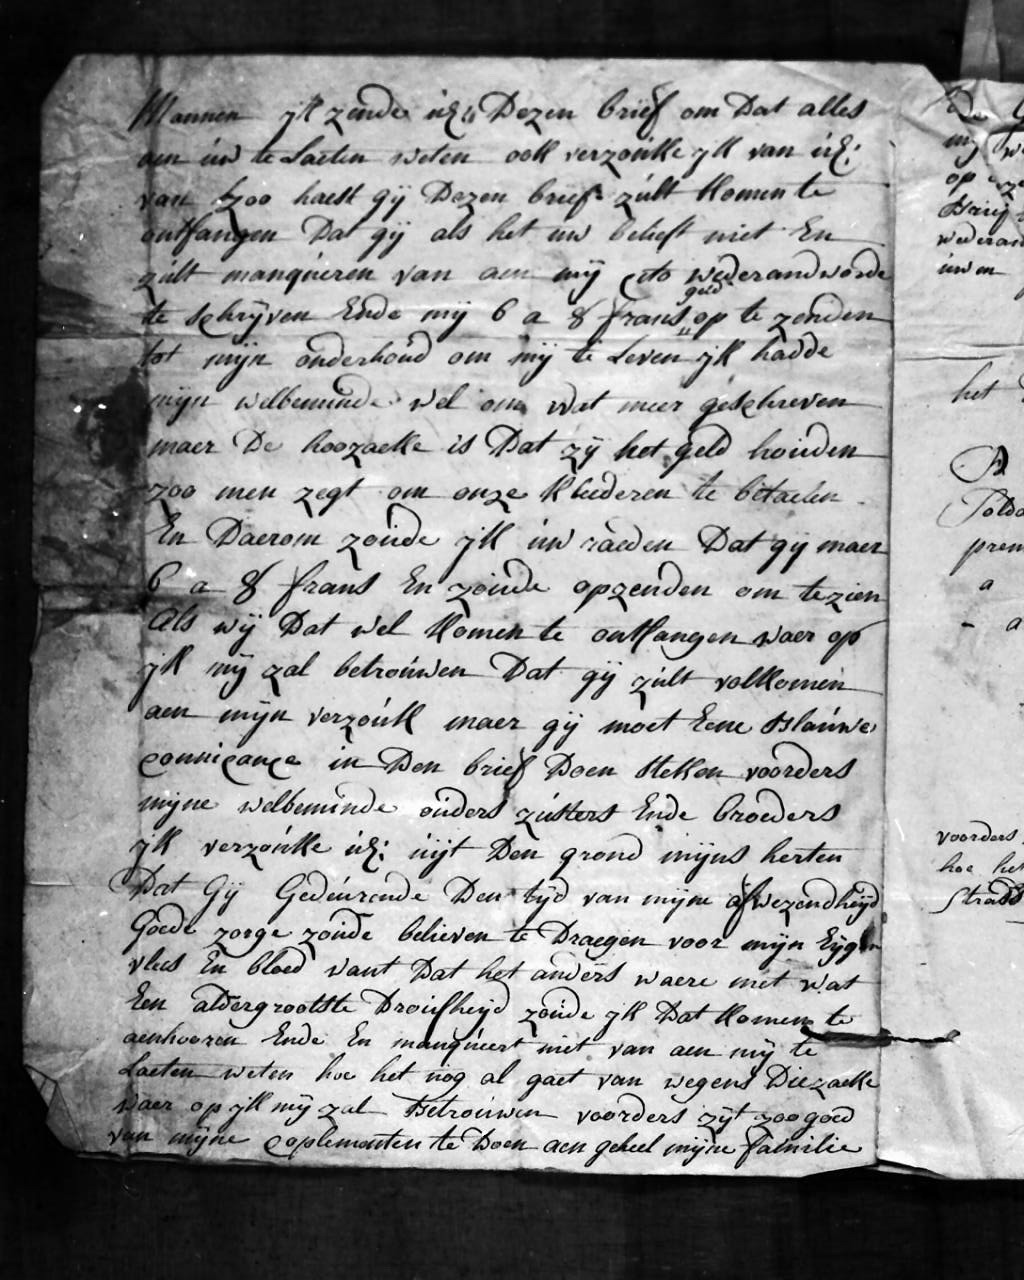 Mannen jk zende úE: Dezen brief om Dat alles
aen úw te Laeten weten ook verzoúke jk van úE:
van zoo haest gij Dezen brief zúlt komen te
ontfangen Dat gij als het uw belieft niet En
zúlt manqúeren van aen mij cito wederandworde
te schrijven Ende mij 6 a 8 frans geld op te zenden
tot mijn onderhoud om mij te Leven jk hadde
mijn welbeminde wel om wat meer geschreven
maer De hoozaeke is Dat zij het geld houden
zoo men zegt om onze kleederen te betaelen
En Daerom zoúde jk úw raeden Dat gij maer
6 a 8 frans En zoúde opzenden om te zien
Als wij Dat wel komen te ontfangen waer op
jk mij zal betroúwen Dat gij zúlt volkomen
aen mijn verzoúk maer gij moet Eene Blaúwe
connicance in Den brief Doen steken voorders
mijne welbeminde oúders zústers Ende broeders
jk verzoúke úE: úijt Den grond mijns herten
Dat Gij Gedeúrende Den tijd van mijne afwezendheijd
Goede zorge zoúde believen te Draegen voor mijn Eijgen
vlees En bloed want Dat het anders waere met wat
Een aldergrootste Droúfheijd zoúde jk Dat komen te
aenhooren Ende En manqúeert niet van aen mij te
Laeten weten hoe het nog al gaet van wegens Die zaeke
waer op jk mij zal Betroúwen voorders zijt zoo goed
van mijne complementen te Doen aen geheel mijne familie
op
het
a
voorders
hoe het